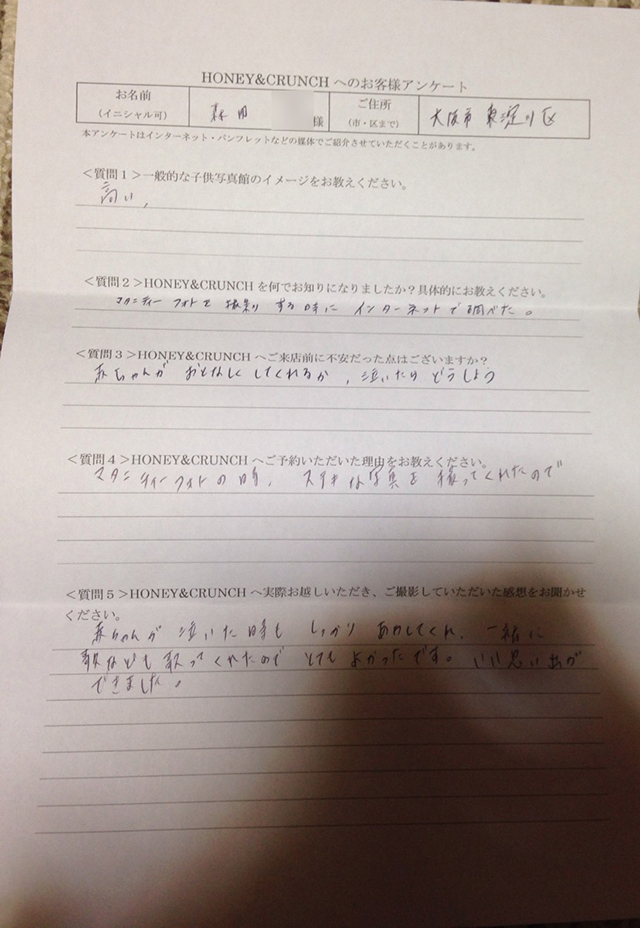 HONEY&CRUNCH へのお客様アンケート
お名前
(イニシャル可)
森田
様
ご住所
(市・区まで)
大阪市 東淀川区
本アンケートはインターネット・パンフレットなどの媒体でご紹介させていただくことがあります。
<質問1>一般的な子供写真館のイメージをお教えください。
高い、
<質問2>HONEY&CRUNCH を何でお知りになりましたか?具体的にお教えください。
マタニティーフォトを撮影する時にインターネットで調べた。
<質問3>HONEY&CRUNCH へご来店前に不安だった点はございますか?
赤ちゃんが おとなしくしてくれるか、泣いたり どうしよう
<質問4>HONEY&CRUNCH へご予約いただいた理由をお教えください。
マタニティーフォトの時、ステキな写真を撮ってくれたので
<質問5>HONEY&CRUNCH へ実際お越しいただき、ご撮影していただいた感想をお聞かせ
ください。
赤ちゃんが 泣いた時も しっかり あやしてくれ、一緒に
歌なども歌ってくれたので とてもよかったです。いい思い出が
できました。